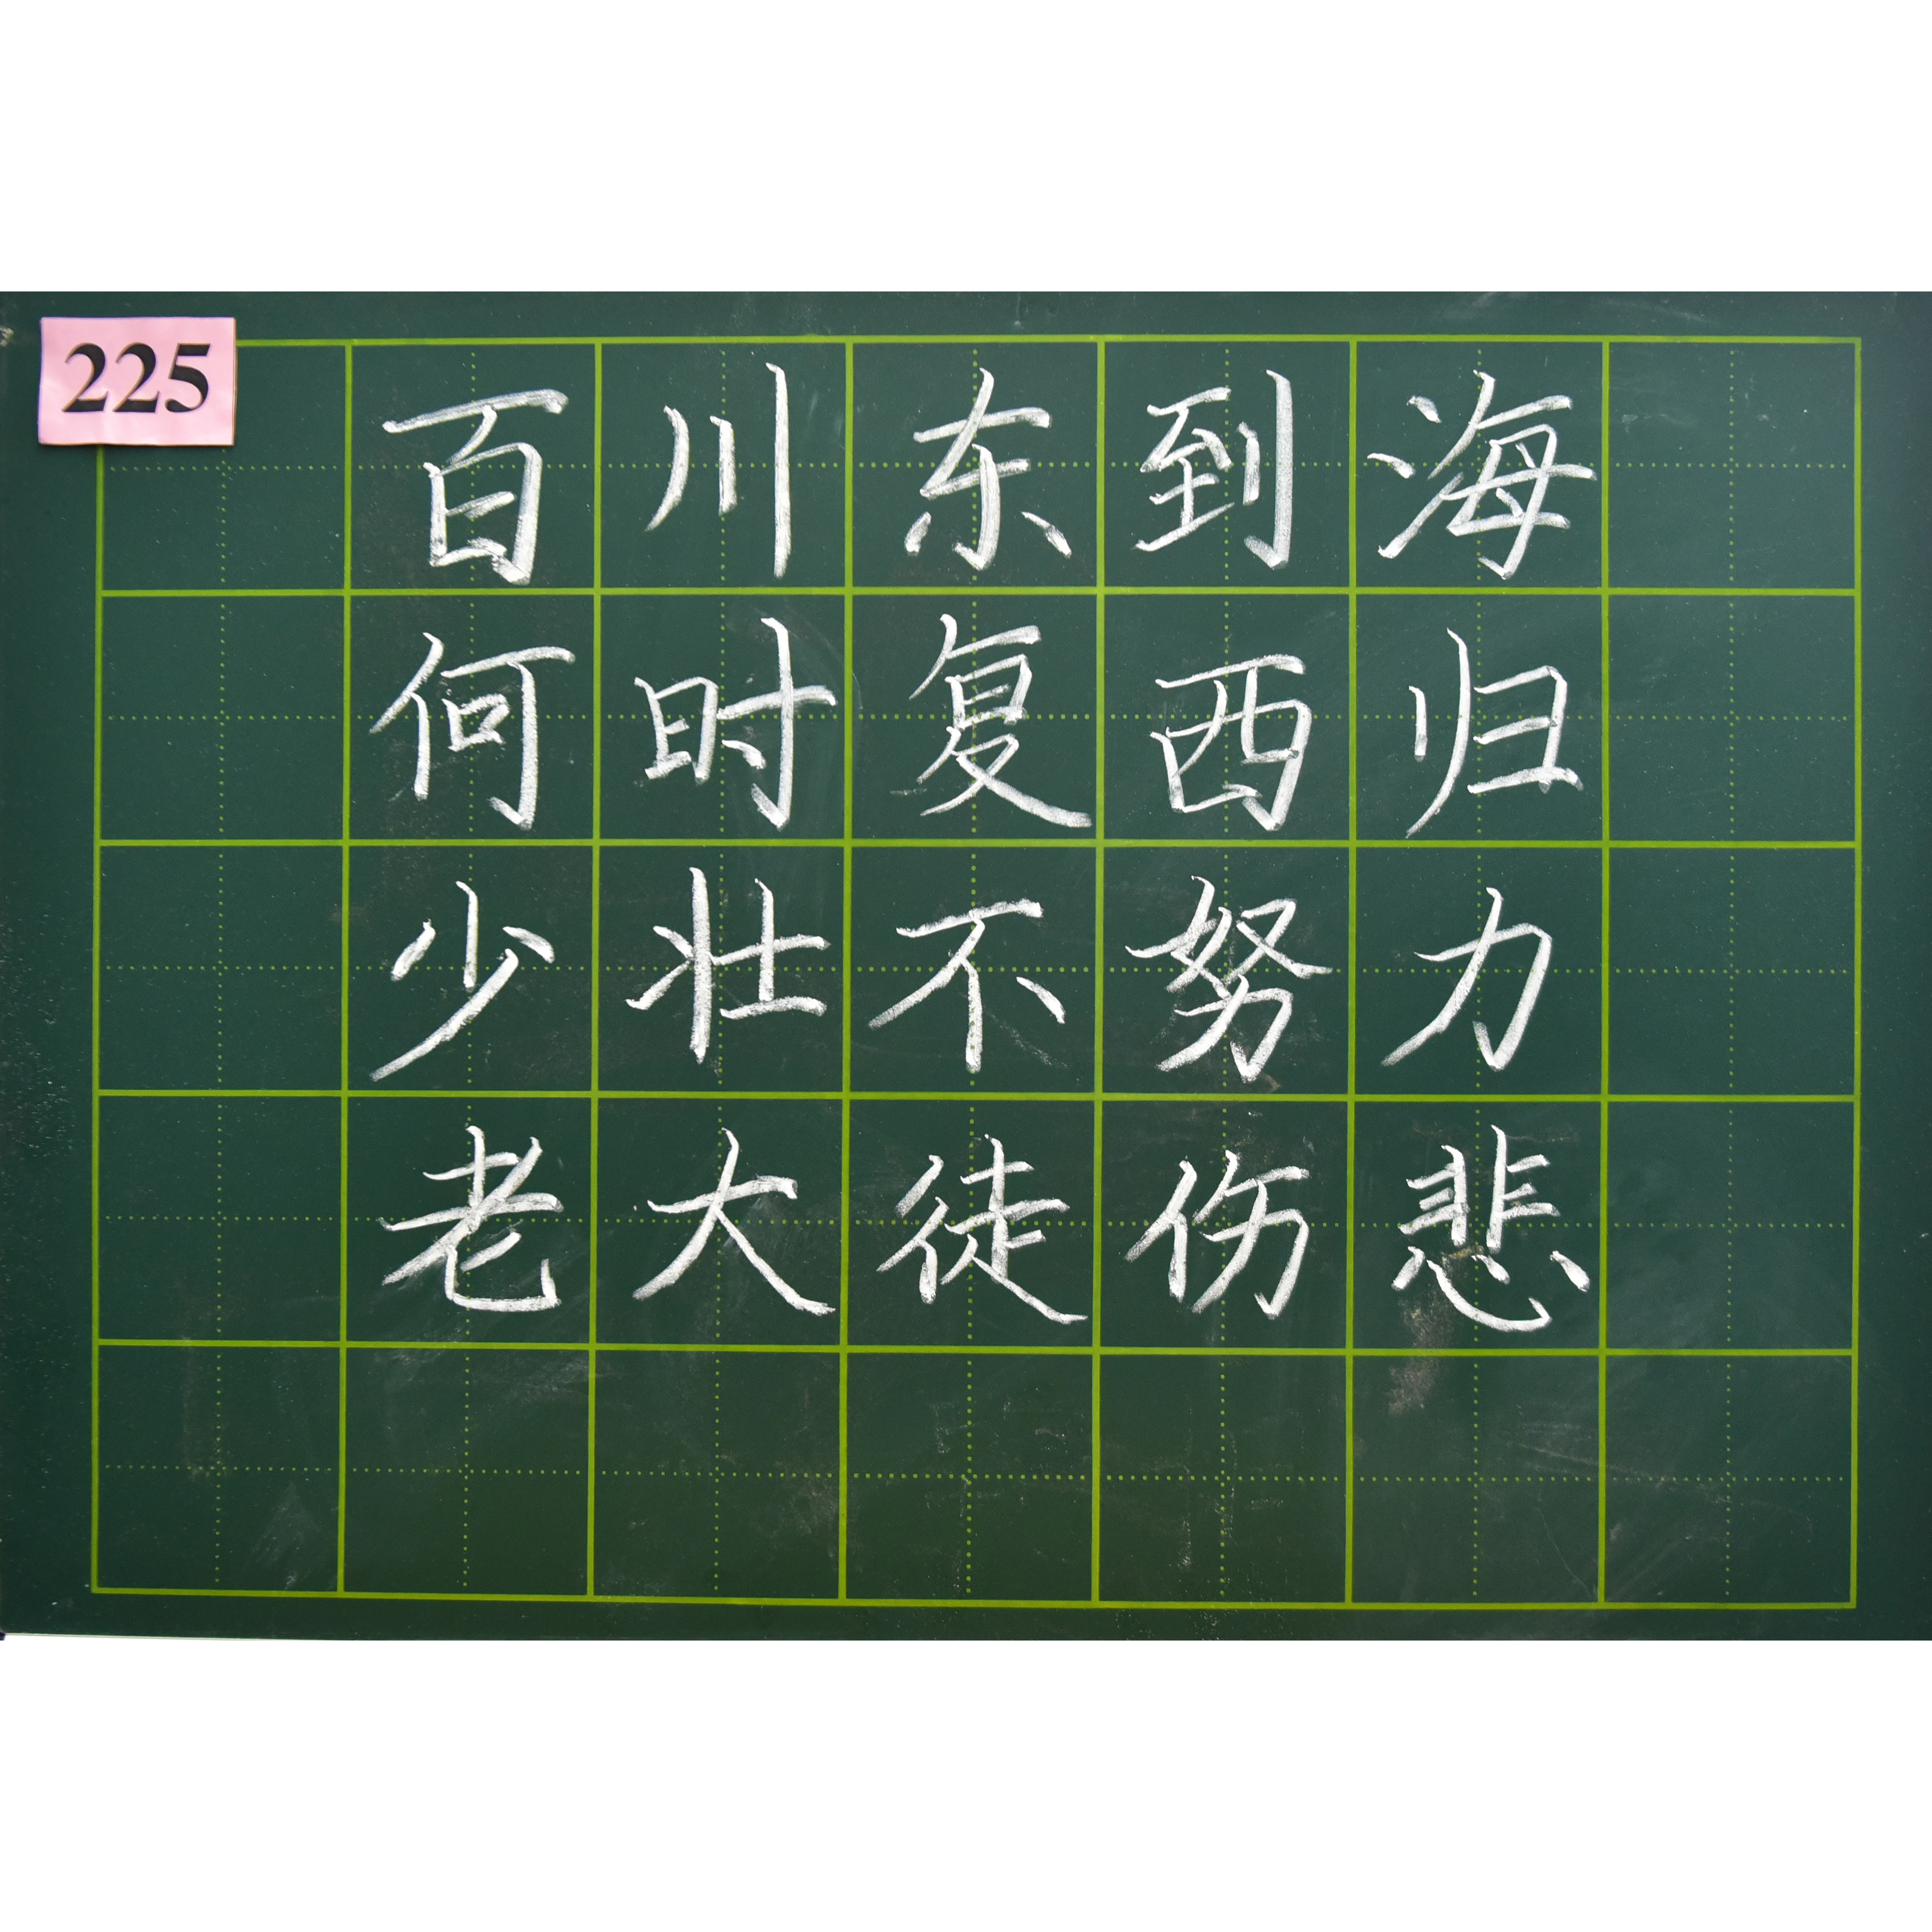 225
百川东到海
何时复西归
少壮不努力
老大徒伤悲